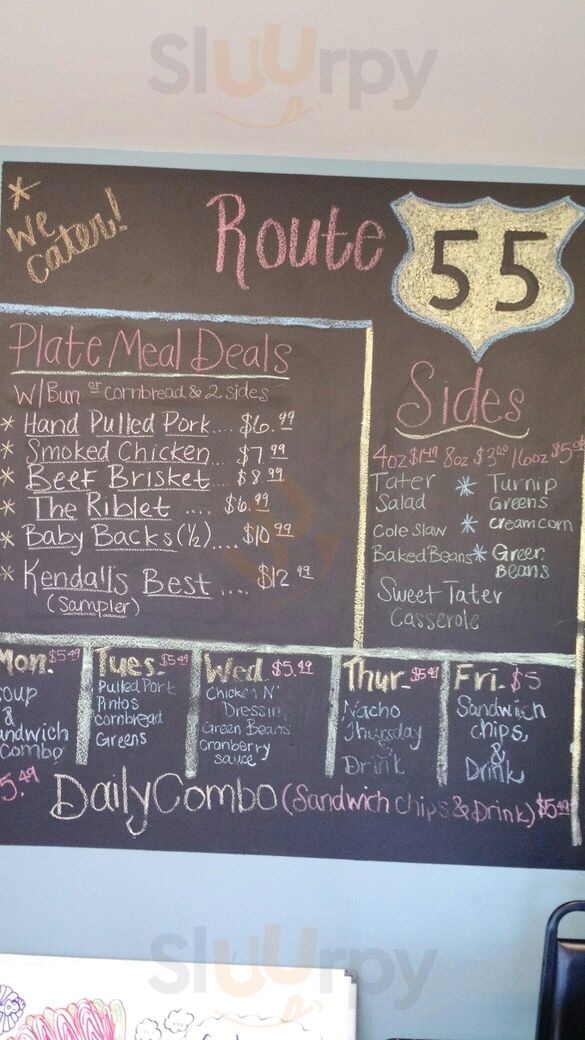 SlUUrpy
* We cater!
Route 55
Plate Meal Deals
W/Bun or cornbread & 2 sides
* Hand Pulled Pork.... $6.99
* Smoked Chicken.... $7.99
* Beef Brisket.... $8.99
* The Riblet .... $6.99
* Baby Backs (½).... $10.99
* Kendall's Best .... $12.99
(Sampler)
Sides
4oz $1.49 8oz $3.00 16oz
Tater Salad * Turnip Greens
Cole Slaw * Cream corn
Baked Beans * Green Beans
Sweet Tater
Casserole
Mon. $5.49
oup
&
andwich
ombo
Tues. $5.49
Pulled Pork
Pintos
Cornbread
Greens
Wed. $5.49
Chicken N'
Dressin
Green Beans
Cranberry
sauce
Thur. $5.49
Nacho
Thursday
&
Drink
Fri. $5
Sandwich
chips,
&
Drink
5.49 Daily Combo (Sandwich chips & Drink) $5.49
SlUUrpy